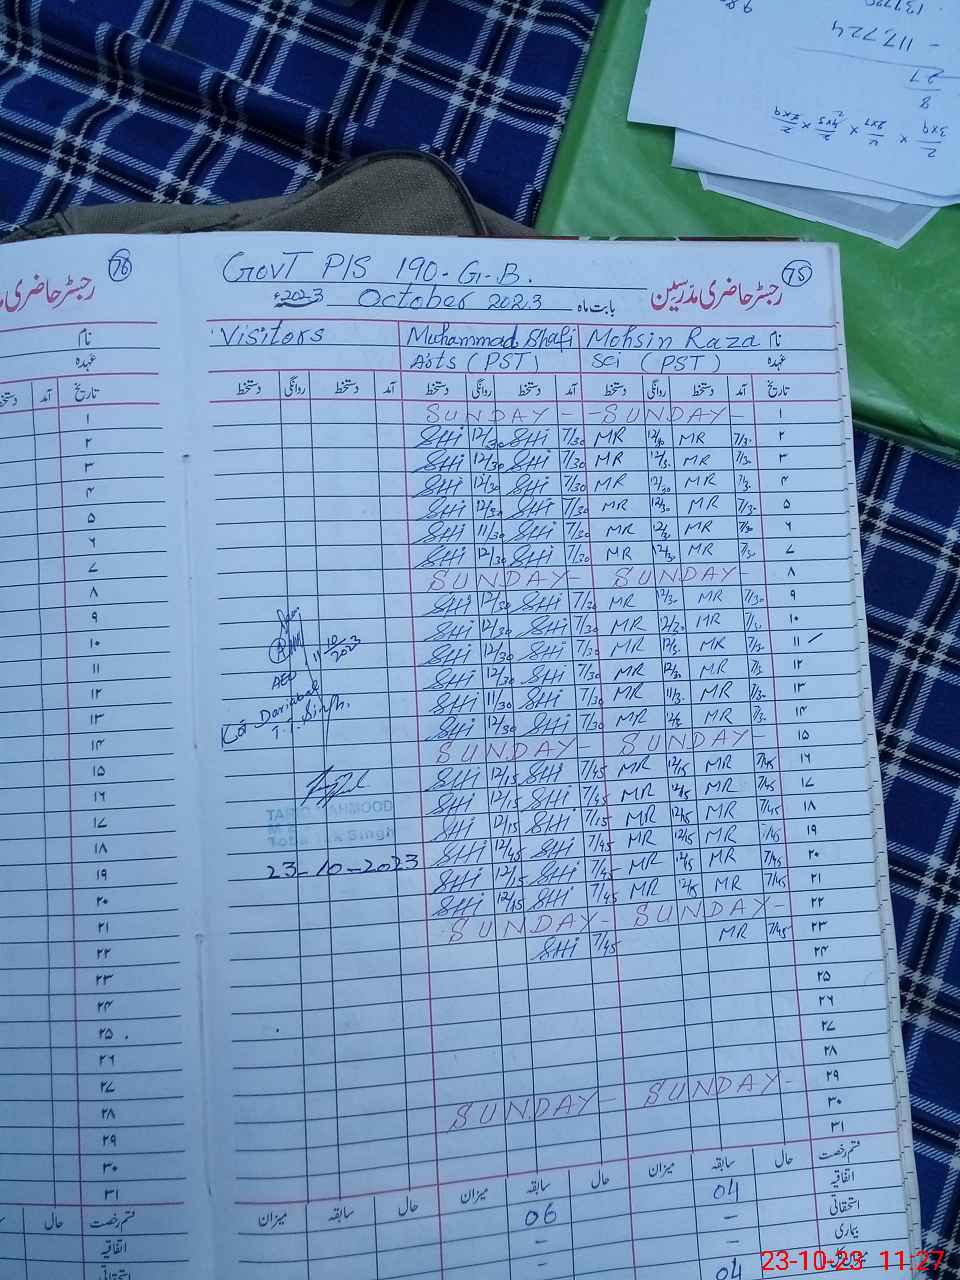 117,724 -
27
8
76
رجسٹر حاضری
نام
عہدہ
تاریخ
آمد
۱
۲
۳
۴
۵
۶
۷
۸
۹
۱۰
۱۱
۱۲
۱۳
۱۴
۱۵
۱۶
۱۷
۱۸
۱۹
۲۰
۲۱
۲۲
۲۳
۲۴
۲۵
۲۶
۲۷
۲۸
۲۹
۳۰
۳۱
قسم رخصت حال
اتفاقیہ
استحقاقی
GovT P/S 190-G-B. 75
رجسٹر حاضری مدرسین
بابت ماہ October 2023 2023ء
نام Mohsin Raza Muhammad Shafi Visitors
عہدہ Sci (PST) Arts (PST)
تاریخ آمد دستخط روانگی دستخط آمد دستخط روانگی دستخط آمد دستخط روانگی دستخط
۱ SUNDAY - - SUNDAY -
۲ 7/30 MR 12/30 MR 7/30 SHi 12/30 SHi
۳ 7/30 MR 12/30 MR 7/30 SHi 12/30 SHi
۴ 7/30 MR 12/30 MR 7/30 SHi 12/30 SHi
۵ 7/30 MR 12/30 MR 7/30 SHi 12/30 SHi
۶ 7/30 MR 12/30 MR 7/30 SHi 11/30 SHi
۷ 7/30 MR 12/30 MR 7/30 SHi 12/30 SHi
۸ SUNDAY - SUNDAY -
۹ 7/30 MR 12/30 MR 7/30 SHi 12/30 SHi
۱۰ 7/30 MR 12/30 MR 7/30 SHi 12/30 SHi
۱۱ 7/30 MR 12/30 MR 7/30 SHi 12/30 SHi
۱۲ 7/30 MR 12/30 MR 7/30 SHi 12/30 SHi
۱۳ 7/30 MR 11/30 MR 7/30 SHi 11/30 SHi
۱۴ 7/30 MR 12/30 MR 7/30 SHi 12/30 SHi
۱۵ SUNDAY - SUNDAY -
۱۶ 7/45 MR 12/15 MR 7/45 SHi 12/15 SHi
۱۷ 7/45 MR 12/15 MR 7/45 SHi 12/15 SHi
۱۸ 7/45 MR 12/15 MR 7/45 SHi 12/15 SHi
۱۹ 7/45 MR 12/15 MR 7/45 SHi 12/45 SHi
۲۰ 7/45 MR 12/15 MR 7/45 SHi 12/15 SHi
۲۱ 7/45 MR 12/15 MR 7/45 SHi 12/15 SHi
۲۲ SUNDAY - SUNDAY -
۲۳ 7/45 MR 7/45 SHi
۲۴
۲۵
۲۶
۲۷
۲۸
۲۹ SUNDAY - SUNDAY -
۳۰
۳۱
11 10/2023
AEO
Dariabal
T.T.Singh.
TARIQ MAHMOOD
Toba Tek Singh
23-10-2023
قسم رخصت حال سابقہ میزان حال سابقہ میزان حال سابقہ میزان
اتفاقیہ 04 06
استحقاقی - -
بیماری - -
04
23-10-23 11:27